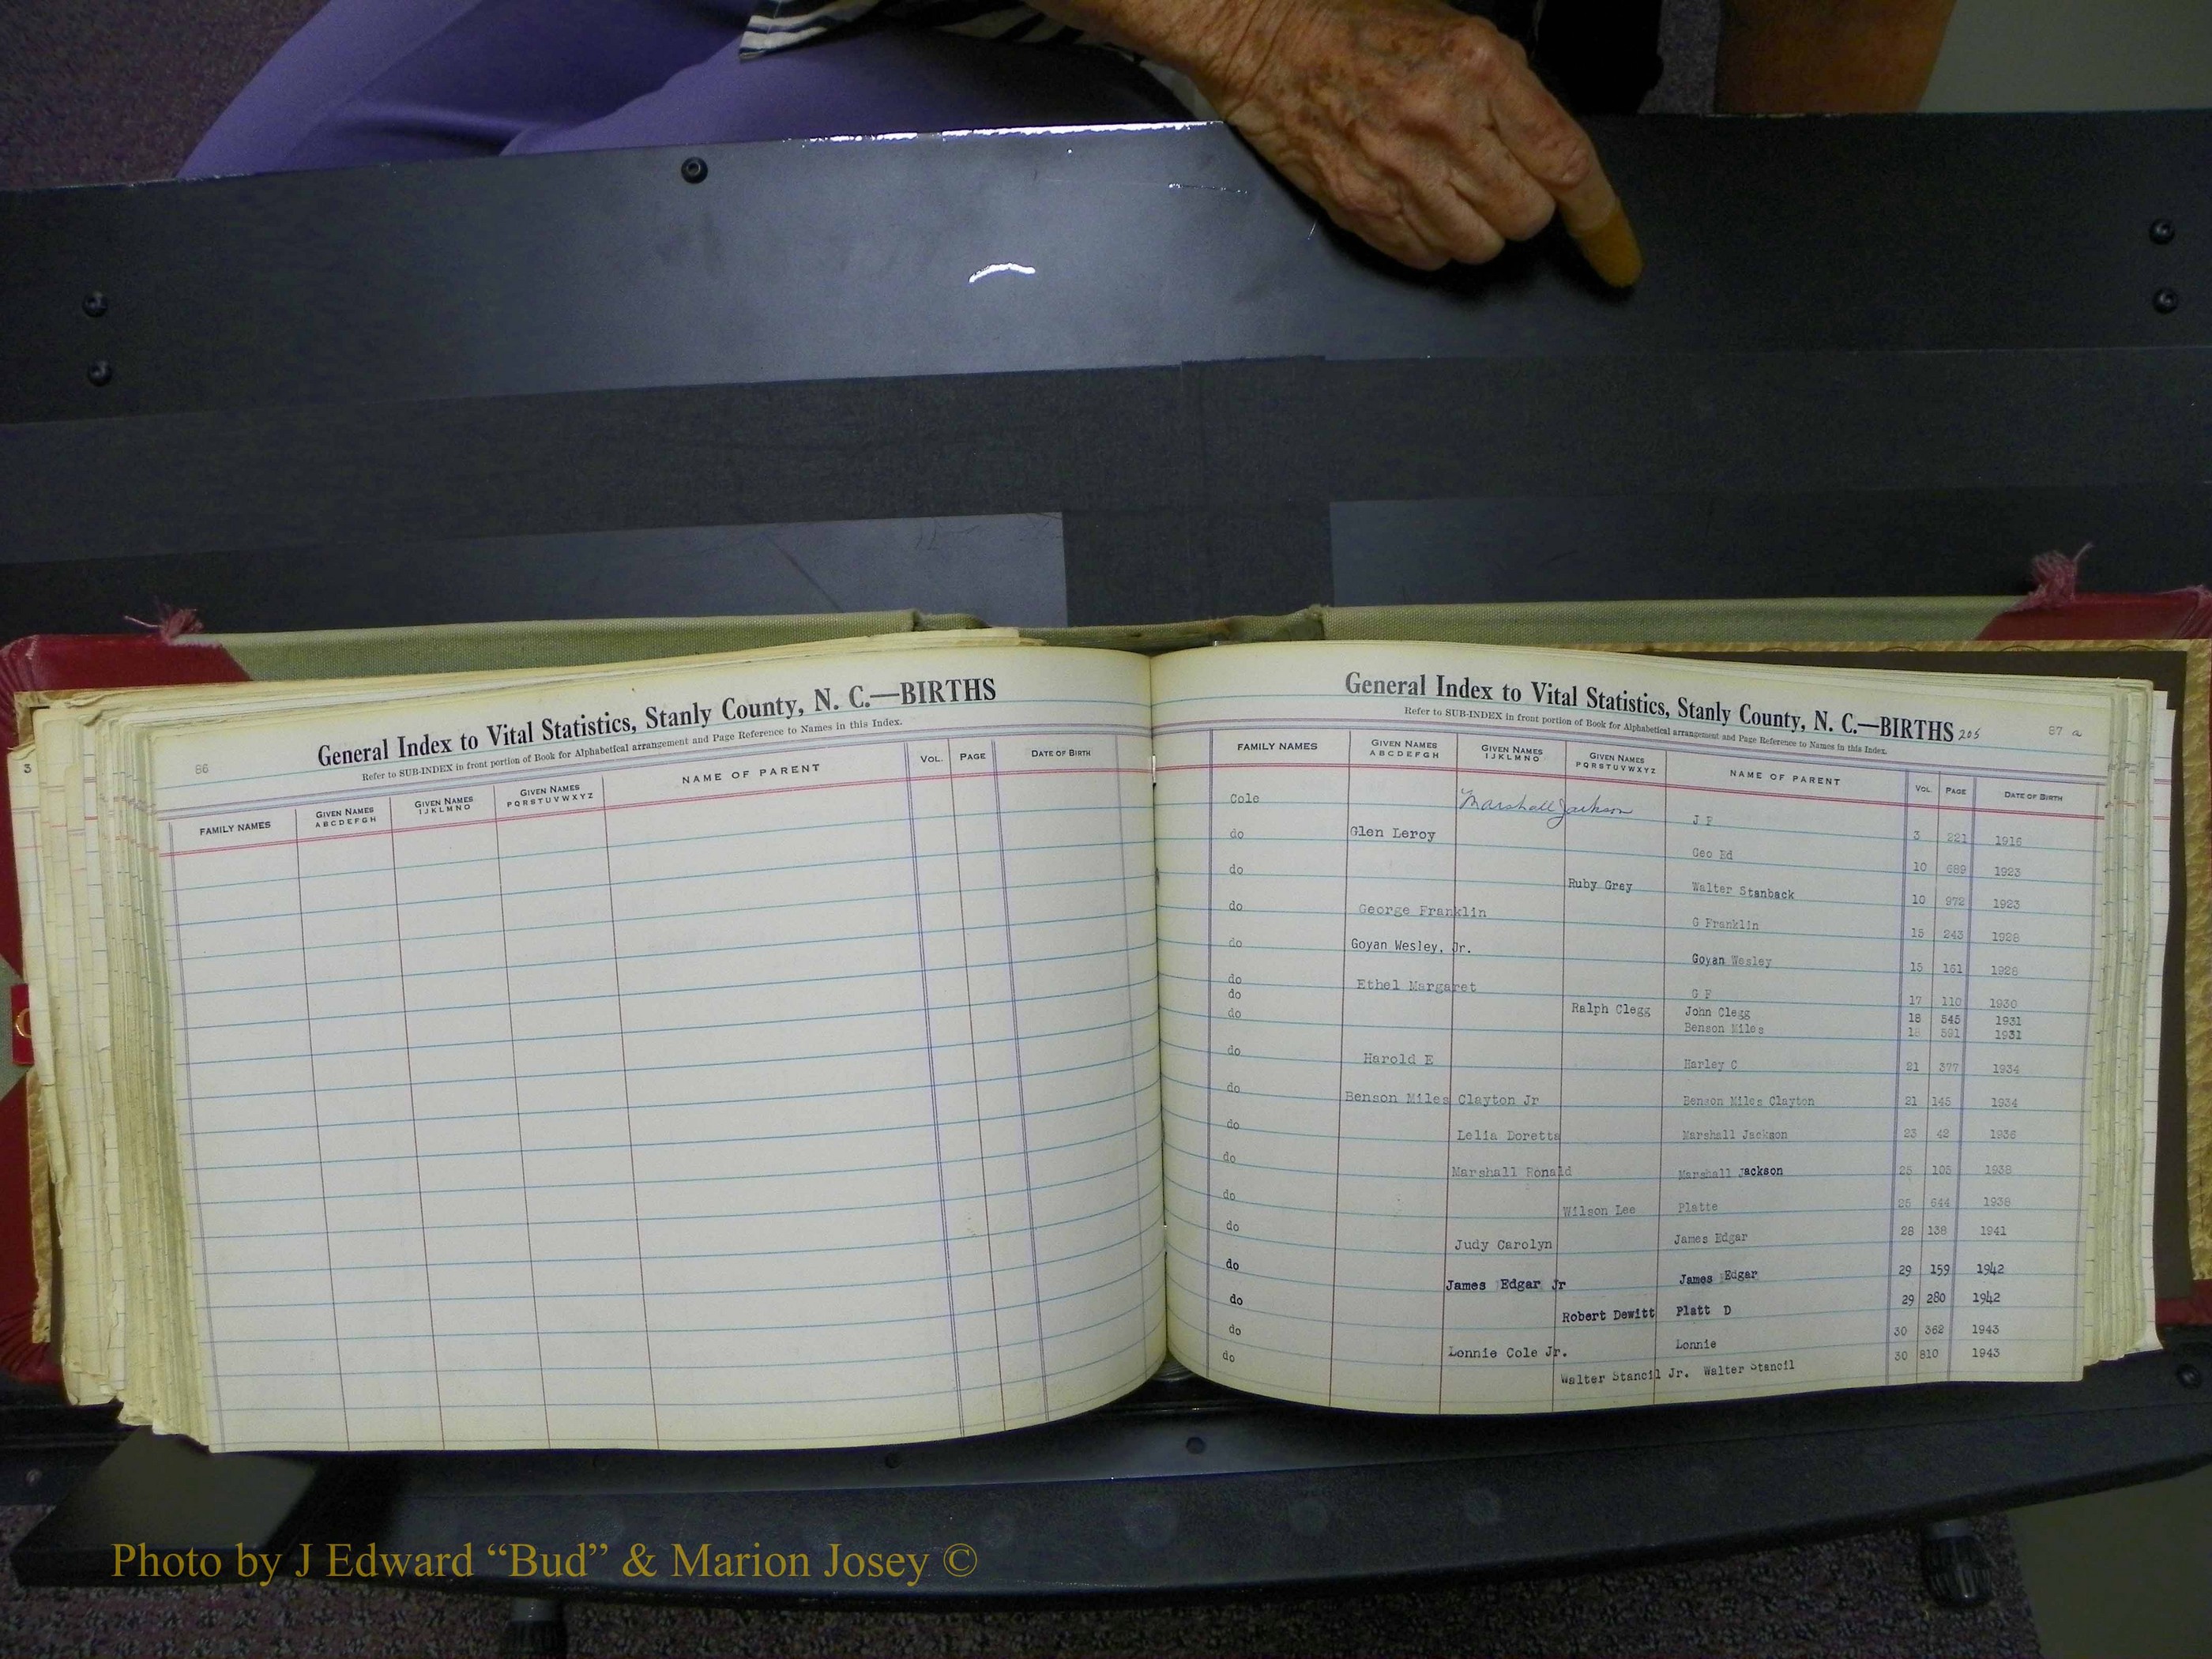 86
General Index to Vital Statistics, Stanly County, N. C.—BIRTHS
Refer to SUB-INDEX in front portion of Book for Alphabetical arrangement and Page Reference to Names in this Index.
FAMILY NAMES GIVEN NAMES ABCDEFGH GIVEN NAMES IJKLMNO GIVEN NAMES PQRSTUVWXYZ NAME OF PARENT VOL. PAGE DATE OF BIRTH
3
General Index to Vital Statistics, Stanly County, N. C.—BIRTHS 205 87 a
Refer to SUB-INDEX in front portion of Book for Alphabetical arrangement and Page Reference to Names in this Index.
FAMILY NAMES GIVEN NAMES ABCDEFGH GIVEN NAMES IJKLMNO GIVEN NAMES PQRSTUVWXYZ NAME OF PARENT VOL PAGE DATE OF BIRTH
Cole Marshall Jackson J P 3 221 1916
do Glen Leroy Geo Ed 10 689 1923
do Ruby Grey Walter Stanback 10 972 1923
do George Franklin G Franklin 15 243 1928
do Goyan Wesley, Jr. Goyan Wesley 15 161 1928
do Ethel Margaret G F 17 110 1930
do Ralph Clegg John Clegg 18 545 1931
do Benson Miles 18 591 1931
do Harold E Harley C 21 377 1934
do Benson Miles Clayton Jr Benson Miles Clayton 21 145 1934
do Lelia Doretta Marshall Jackson 23 42 1936
do Marshall Ronald Marshall Jackson 25 105 1938
do Wilson Lee Platte 25 644 1938
do Judy Carolyn James Edgar 28 138 1941
do James Edgar Jr James Edgar 29 159 1942
do Robert Dewitt Platt D 29 280 1942
do Lonnie Cole Jr. Lonnie 30 362 1943
do Walter Stancil Jr. Walter Stancil 30 810 1943
Photo by J Edward “Bud” & Marion Josey ©